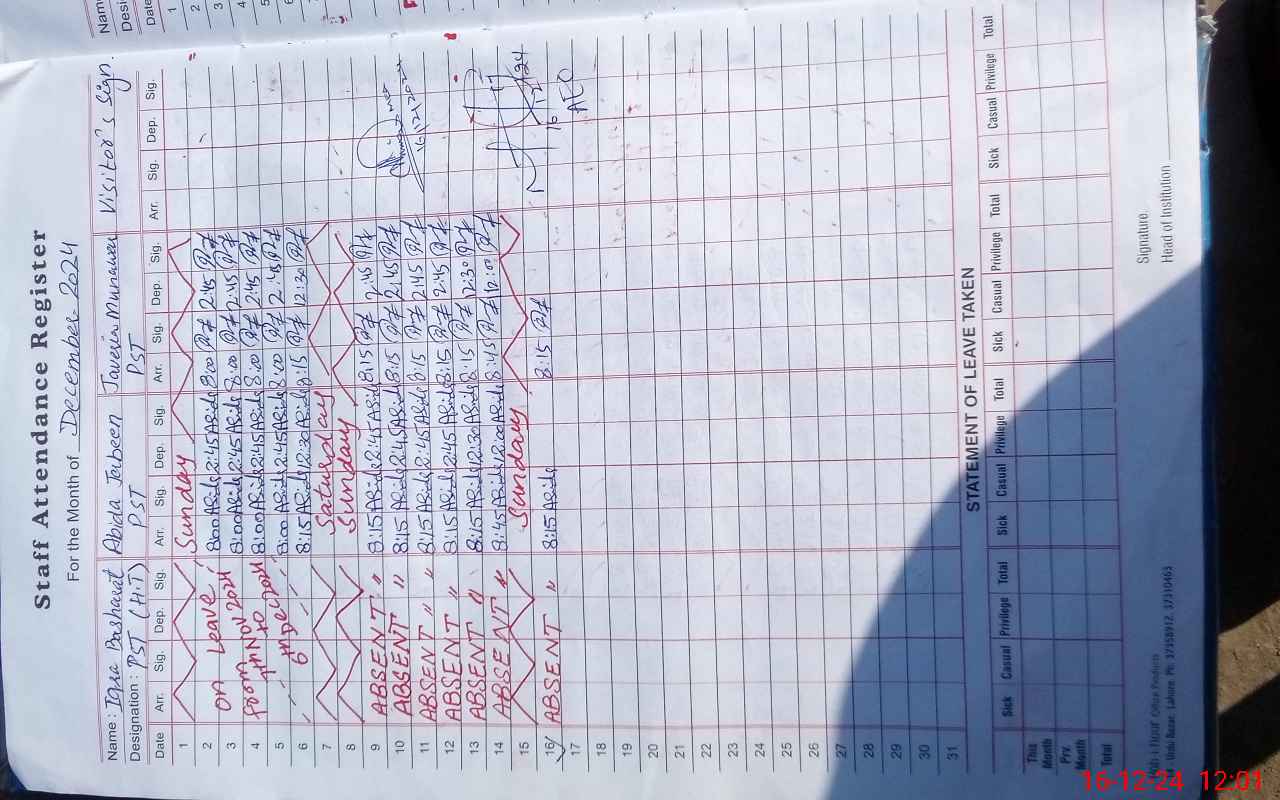 Staff Attendance Register
For the Month of December 2024
Name : Iqra Basharat Abida Jabeen Javeria Munawar Visitor's Sign.
Designation : PST (H.T) PST PST
Date Arr. Sig. Dep. Sig. Arr. Sig. Dep. Sig. Arr. Sig. Dep. Sig. Arr. Sig. Dep. Sig.
1 Sunday
2 On Leave 8:00 Abida 2:45 Abida 8:00 2:45
3 from 7th Nov 2024 8:00 Abida 2:45 Abida 8:00 2:45
4 to 8:00 Abida 2:45 Abida 8:00 2:45
5 6th Dec 2024 8:00 Abida 2:45 Abida 8:00 2:45
6 8:15 Abida 12:30 Abida 8:15 12:30
7 Saturday
8 Sunday
9 ABSENT " 8:15 Abida 2:45 Abida 8:15 2:45
10 ABSENT " 8:15 Abida 2:45 Abida 8:15 2:45 16/12/2024
11 ABSENT " 8:15 Abida 2:45 Abida 8:15 2:45
12 ABSENT " 8:15 Abida 2:45 Abida 8:15 2:45
13 ABSENT " 8:15 Abida 12:30 Abida 8:15 12:30
14 ABSENT " 8:45 Abida 12:00 Abida 8:45 12:00
15 Sunday 16/12/24
16 ABSENT " 8:15 Abida 8:15 AEO
17
18
19
20
21
22
23
24
25
26
27
28
29
30
31
STATEMENT OF LEAVE TAKEN
Sick Casual Privilege Total Sick Casual Privilege Total Sick Casual Privilege Total Sick Casual Privilege Total
This Month
Prv. Month
Total
Signature
Head of Institution
Office Products
Urdu Bazar, Lahore. Ph: 37358912, 37310463
Name
Desig
Date
1
2
3
4
5
6
7
8
9
10
11
12
13
14
15
16-12-24 12:01